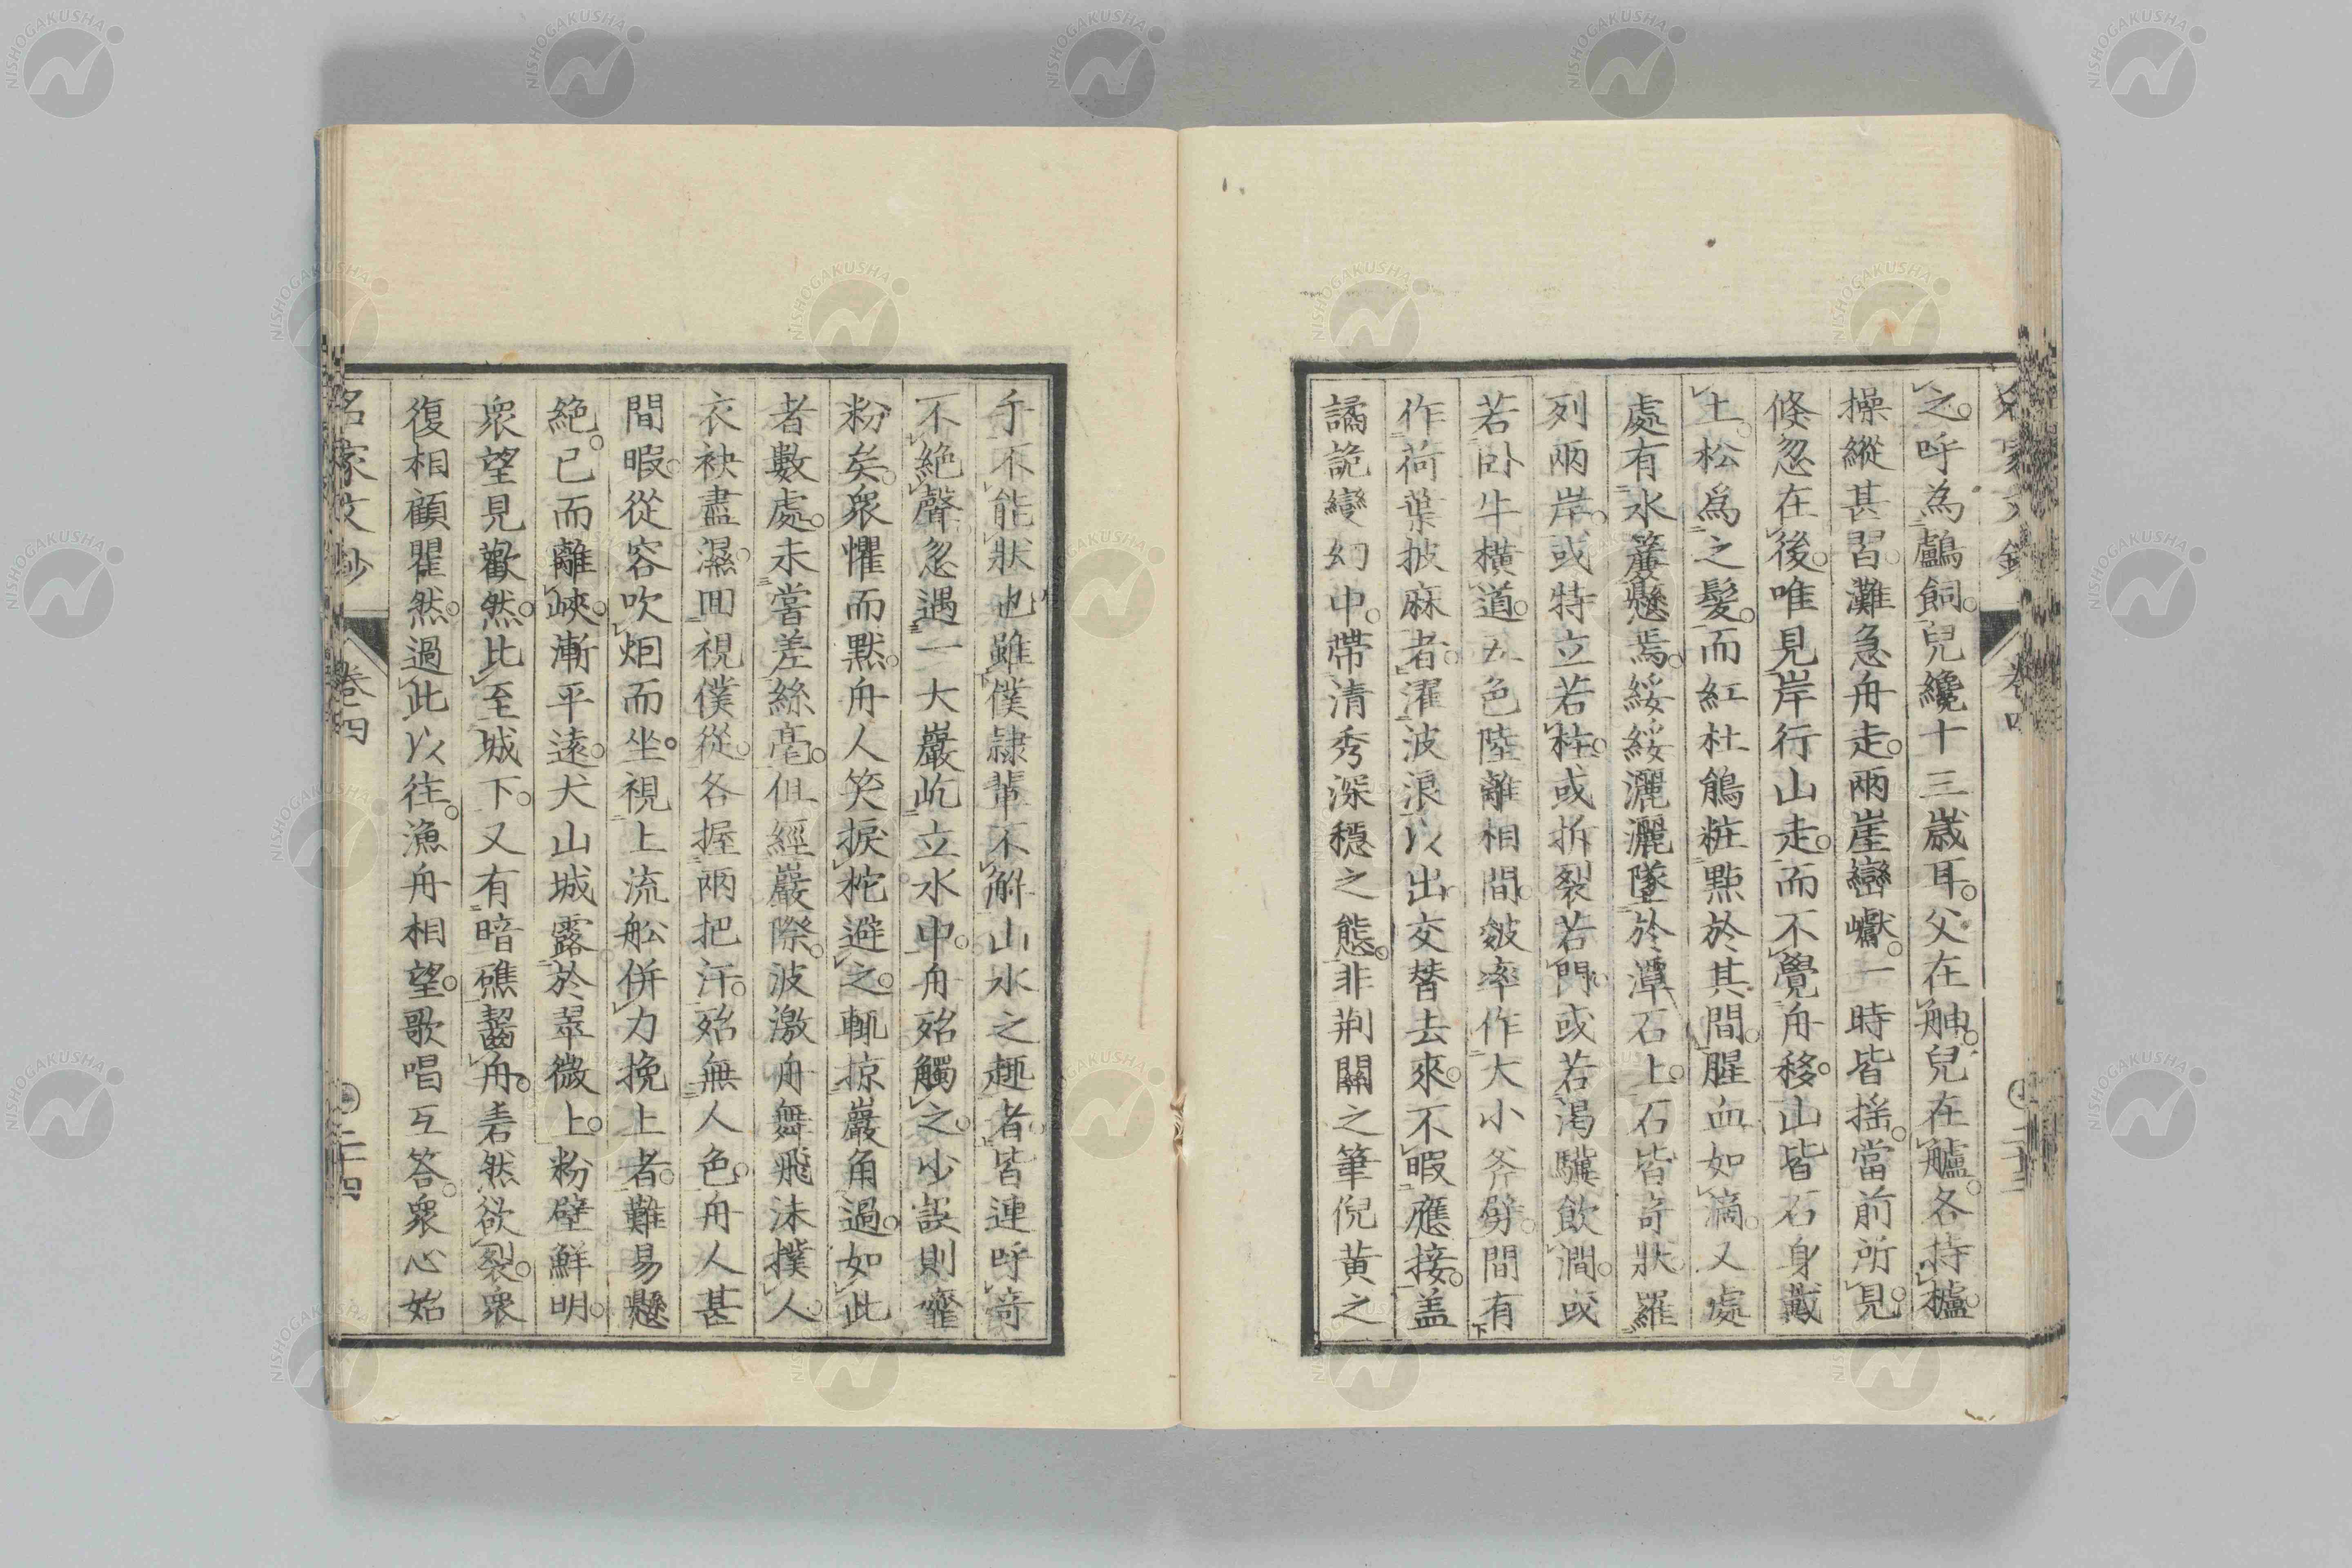 之。呼為鸕飼。兒纔十三歲耳。父在舳。兒在艫。各持櫨。
操縱甚習。灘急舟走。兩崖巒巘。一時皆搖。當前所見。
倏忽在後。唯見岸行山走。而不覺舟移。山皆石身戴
土。松為之髮。而紅杜鵑粧點於其間。腥血如滴。又處
處有水簾懸焉。綏綏灑灑墜於潭石上。石皆奇狀羅
列兩岸。或特立若柱。或拆裂若門。或若渴驥飲澗。或
若臥牛橫道。五色陸離相間。皴率作大小斧劈。間有
作荷葉披麻者。濯波浪以出。交替去來。不暇應接。盖
譎詭變幻中。帶清秀深穩之態。非荆關之筆倪黄之
手不能狀也。雖僕隷輩不解山水之趣者。皆連呼奇
不絕聲。忽遇一大巖屹立水中。舟殆觸之。少誤則虀
粉矣。衆懼而默。舟人笑捩柁避之。輒掠巖角過。如此
者數處。未嘗差絲毫。但經巖際。波激舟舞。飛沫撲人。
衣袂盡濕。囬視僕從。各握兩把汗。殆無人色。舟人甚
間暇。從容吹烟而坐。視上流舩併力挽上者。難易懸
絕。已而離峽。漸平遠。犬山城露於翠微上。粉壁鮮明。
衆望見歡然。比至城下。又有暗礁齧舟。砉然欲裂。衆
復相顧瞿然。過此以往。漁舟相望。歌唱互答。衆心始
名家文鈔 卷四 二十四
NISHOGAKUSHA